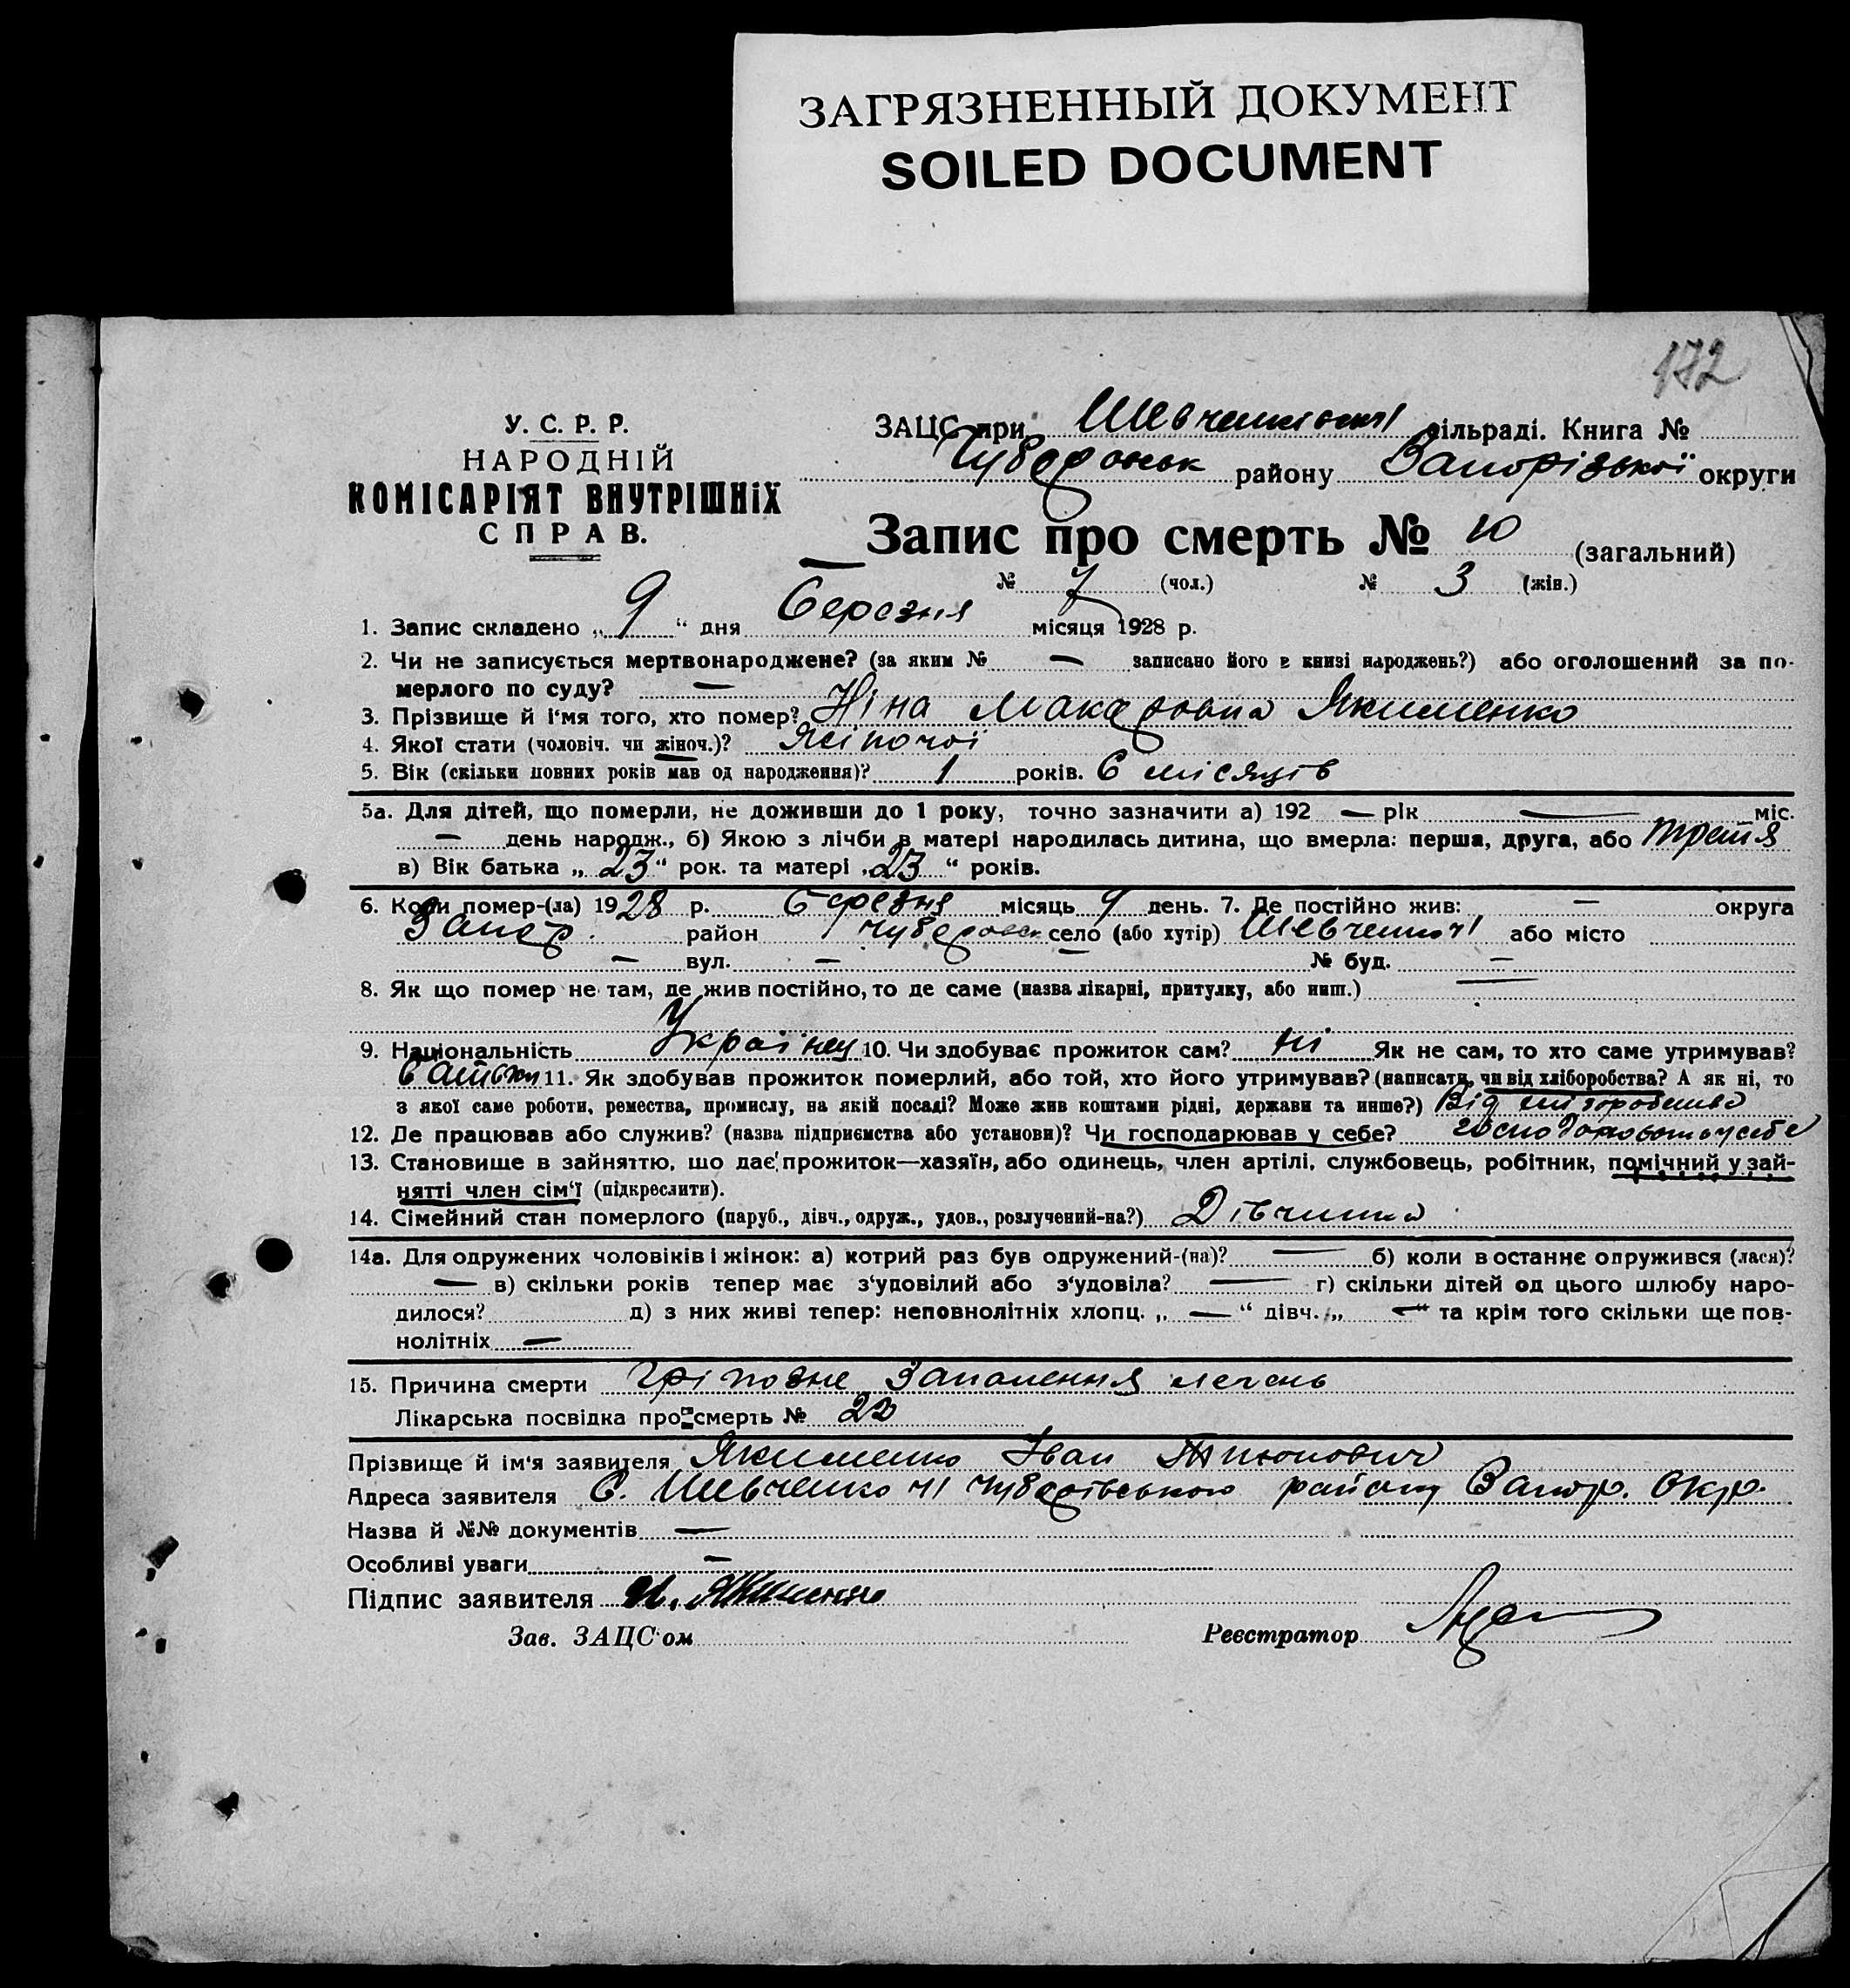 ЗАГРЯЗНЕННЫЙ ДОКУМЕНТ
SOILED DOCUMENT
172
У. С. Р. Р.
НАРОДНІЙ
КОМІСАРІЯТ ВНУТРІШНІХ
СПРАВ.
ЗАЦС при сільраді. Книга №
району Запорізької округи
Запис про смерть № 10 (загальний)
№ 7 (чол.) № 3 (жін.)
1. Запис складено „ 9 “ дня Березня місяця 1928 р.
2. Чи не записується мертвонароджене? (за яким № — записано його в книзі народжень?) або оголошений за по-
мерлого по суду? —
3. Прізвище й і'мя того, хто помер? Ніна Макаровна Якименко
4. Якої стати (чоловіч. чи жіноч.)? Жіночої
5. Вік (скільки повних років мав од народження)? 1 років. 6 місяців
5а. Для дітей, що померли, не доживши до 1 року, точно зазначити а) 192 — рік — міс.
— день народж., б) Якою з лічби в матері народилась дитина, що вмерла: перша, друга, або третя
в) Вік батька „ 23 “ рок. та матері „ 23 “ років.
6. Коли помер-(ла) 1928 р. березня місяць 9 день. 7. Де постійно жив: — округа
Запор. район село (або хутір) або місто
— вул. — — № буд. —
8. Як що помер не там, де жив постійно, то де саме (назва лікарні, притулку, або инш.) —
9. Національність Українец 10. Чи здобуває прожиток сам? ні Як не сам, то хто саме утримував?
батьки 11. Як здобував прожиток померлий, або той, хто його утримував? (написати, чи від хліборобства? А як ні, то
з якої саме роботи, ремества, промислу, на якій посаді? Може жив коштами рідні, держави та инше?) Від хліборобства
12. Де працював або служив? (назва підприємства або установи)? Чи господарював у себе?
13. Становище в зайняттю, що дає прожиток—хазяїн, або одинець, член артілі, службовець, робітник, помічний у зай-
нятті член сім'ї (підкреслити).
14. Сімейний стан померлого (паруб., дівч., одруж., удов., розлучений-на?) Дівчина
14а. Для одружених чоловіків і жінок: а) котрий раз був одружений-(на)? — б) коли востаннє одружився (лася)?
— в) скільки років тепер має з'удовілий або з'удовіла? — г) скільки дітей од цього шлюбу наро-
дилося? д) з них живі тепер: неповнолітніх хлопц. „ — “ дівч. „ — “ та крім того скільки ще пов-
нолітніх —
15. Причина смерти гріпозне запалення легень
Лікарська посвідка про смерть № 22
Прізвище й ім'я заявителя Якименко Іван
Адреса заявителя С. Шевченко районy Запор. Окр.
Назва й №№ документів —
Особливі уваги —
Підпис заявителя И. Якименко
Зав. ЗАЦС'ом
Реєстратор